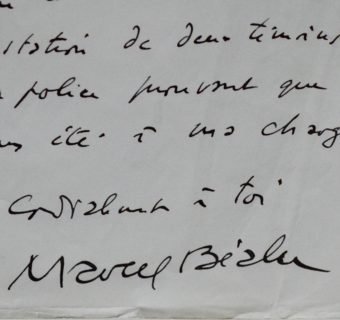 station de deux témoins
police prouvant que
été à ma charg
Cordialement à toi
Marcel Béalu